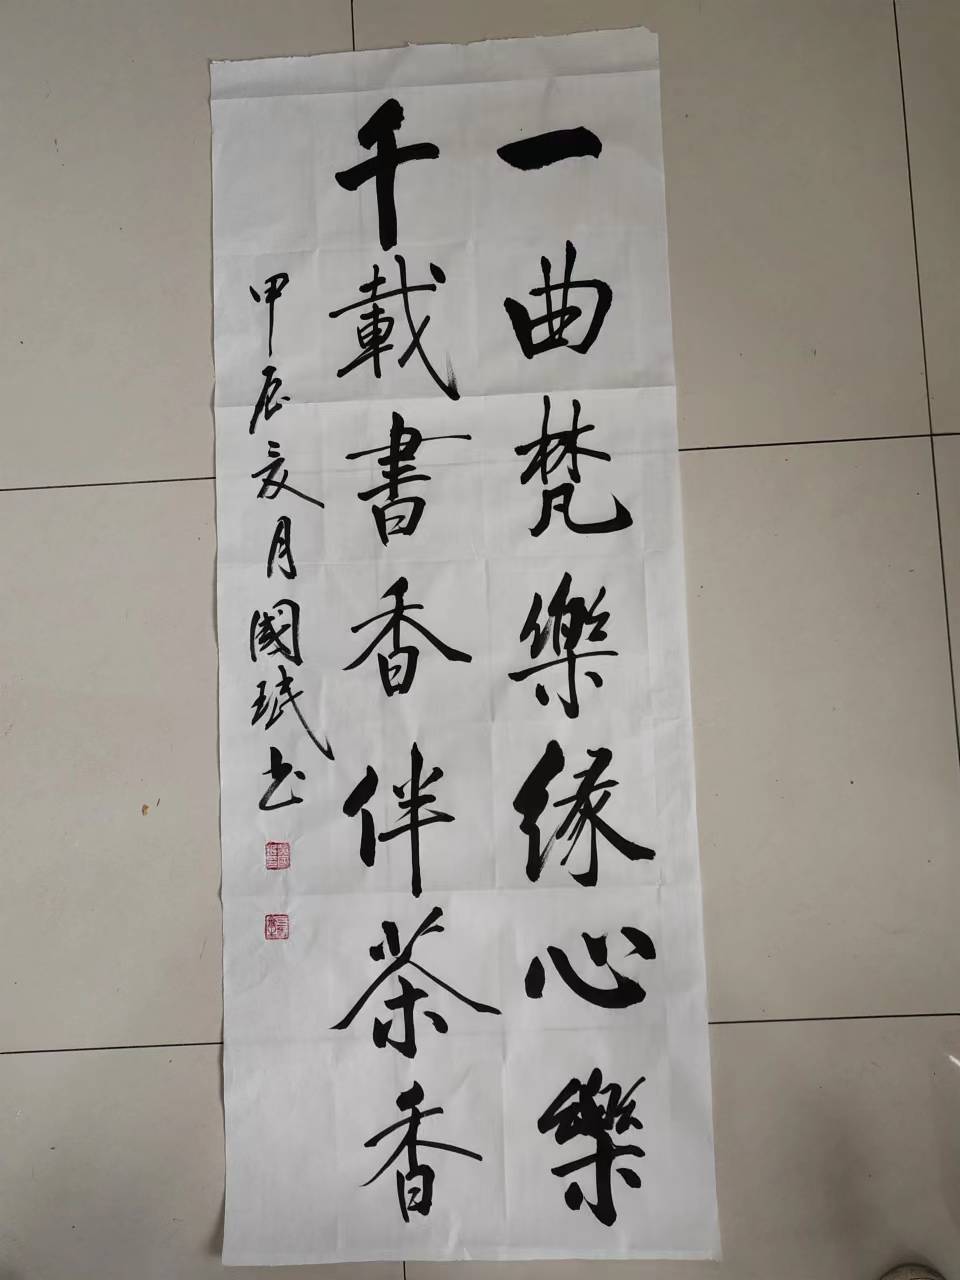 一曲梵樂緣心樂
千載書香伴茶香
甲辰亥月國珷书